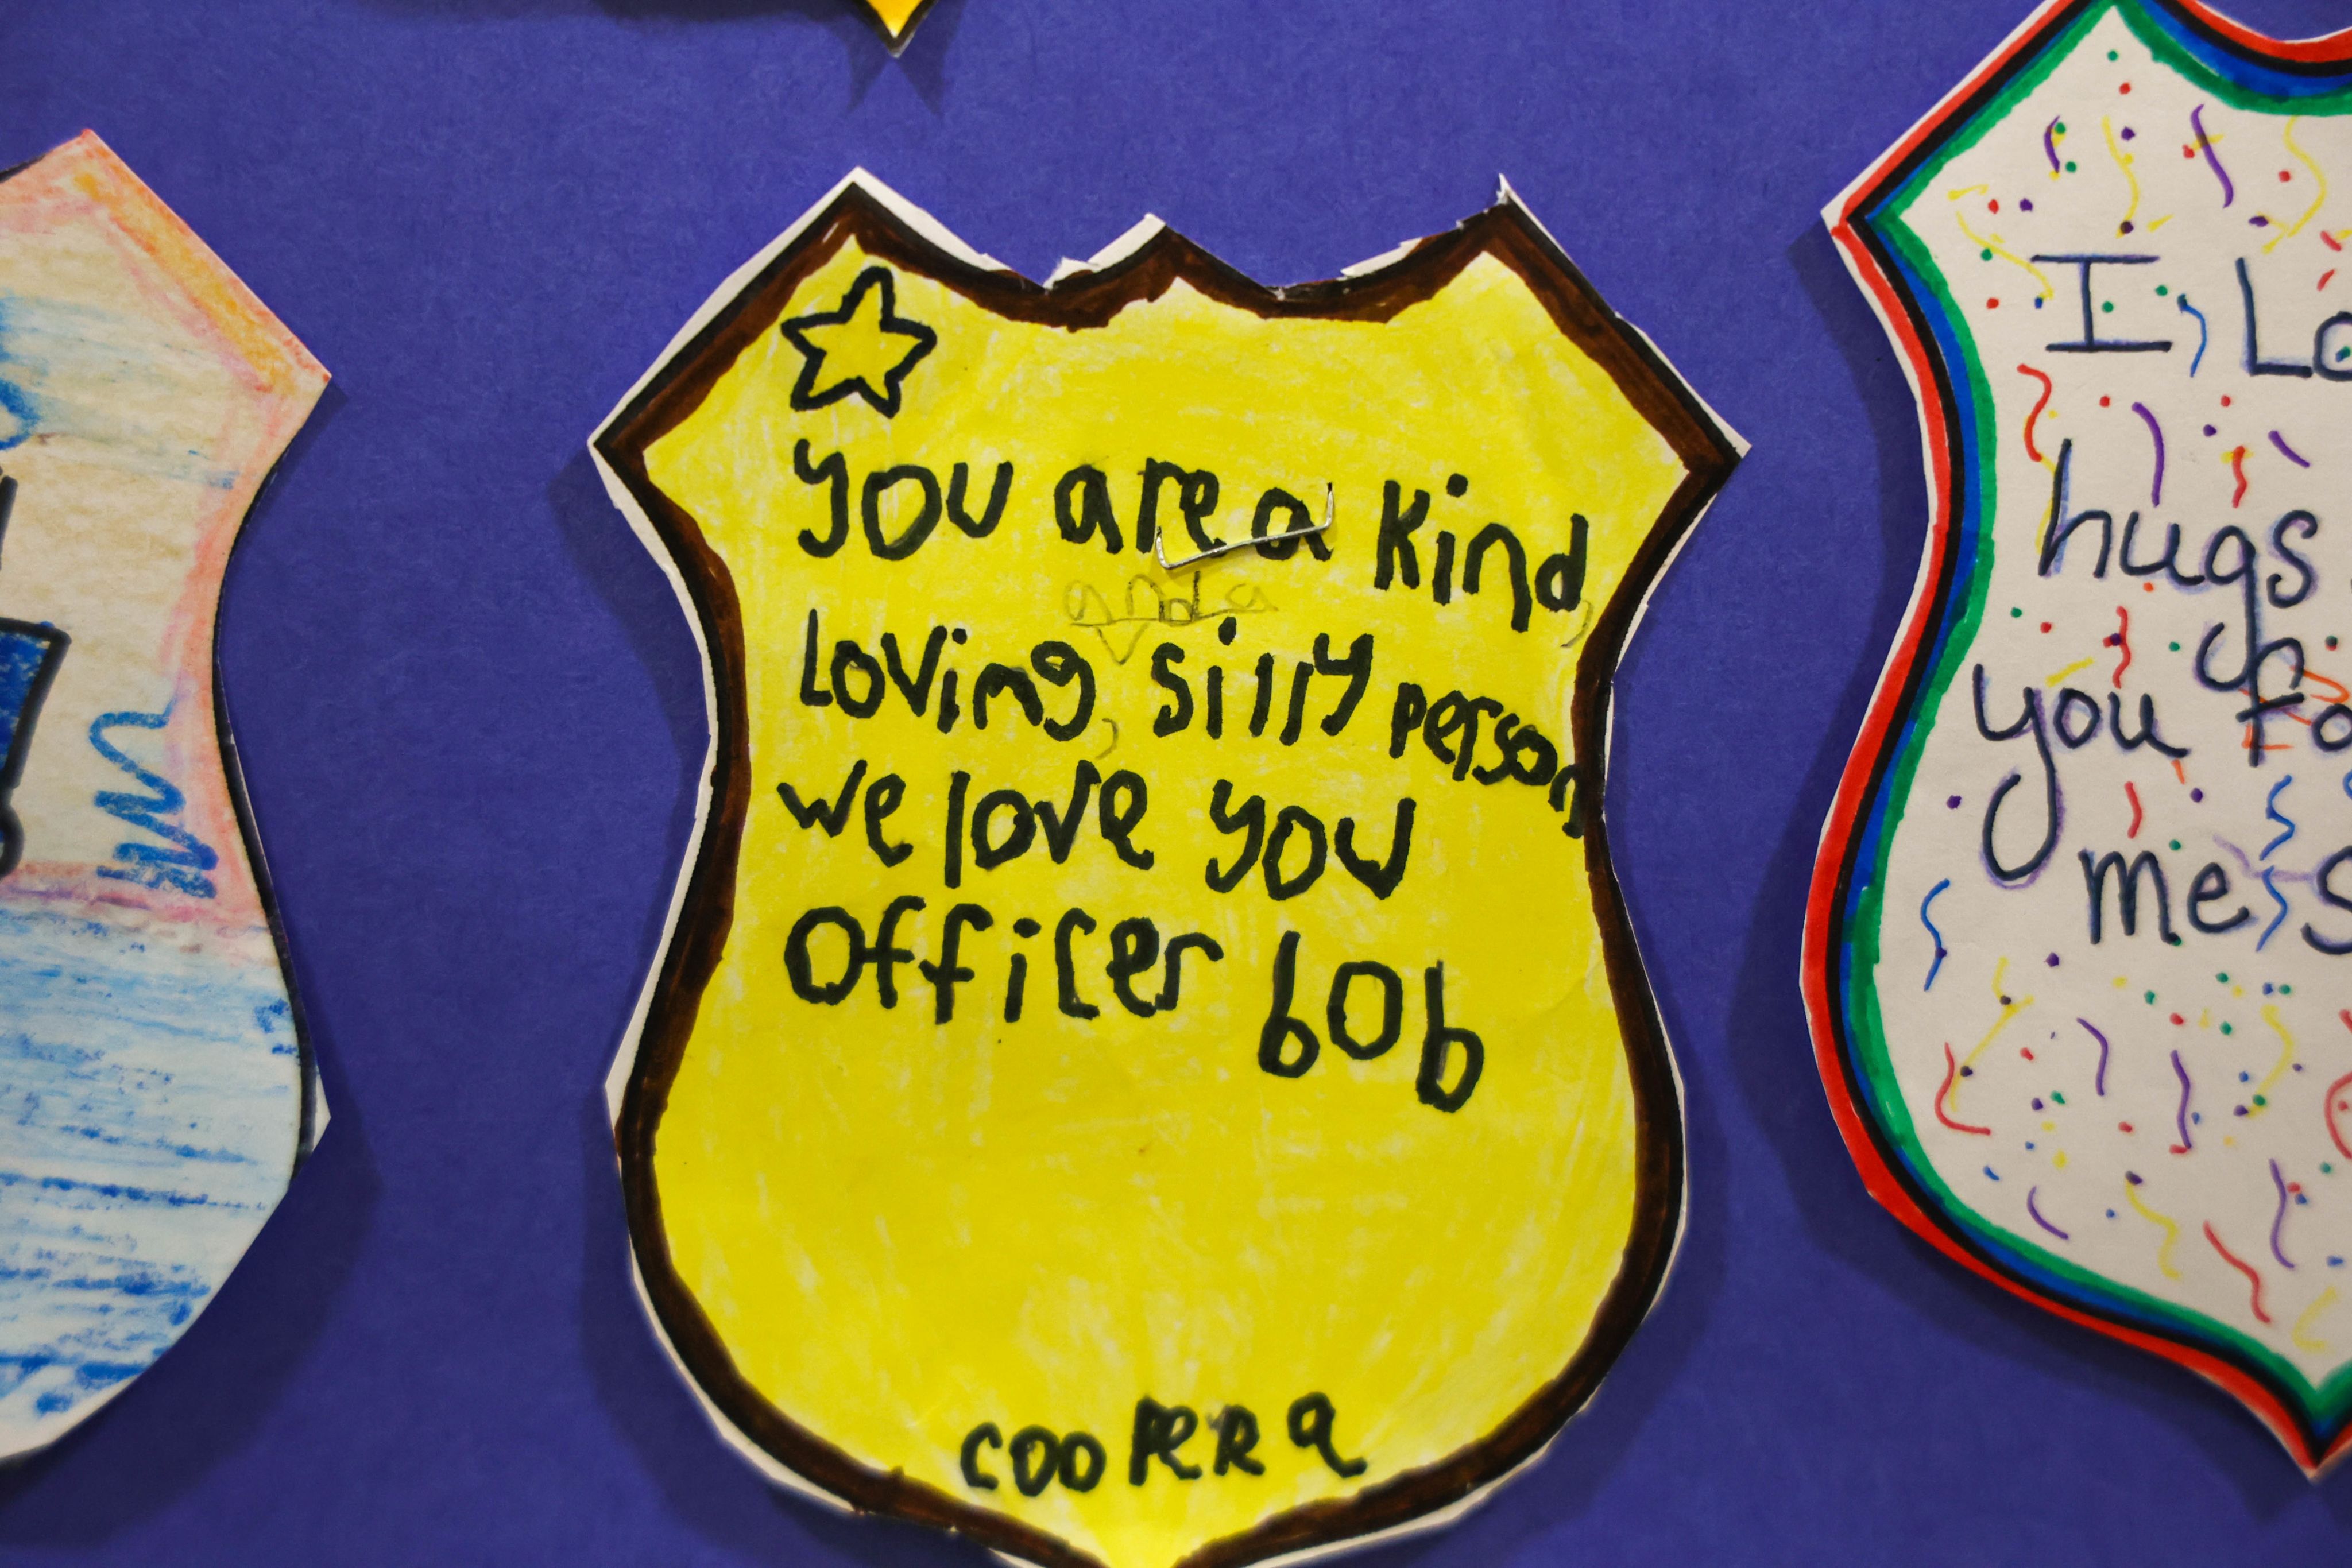 you are a kind,
and a
Loving, silly person
we love you
officer bob
cooper a
I Lo
hugs
you fo
me s